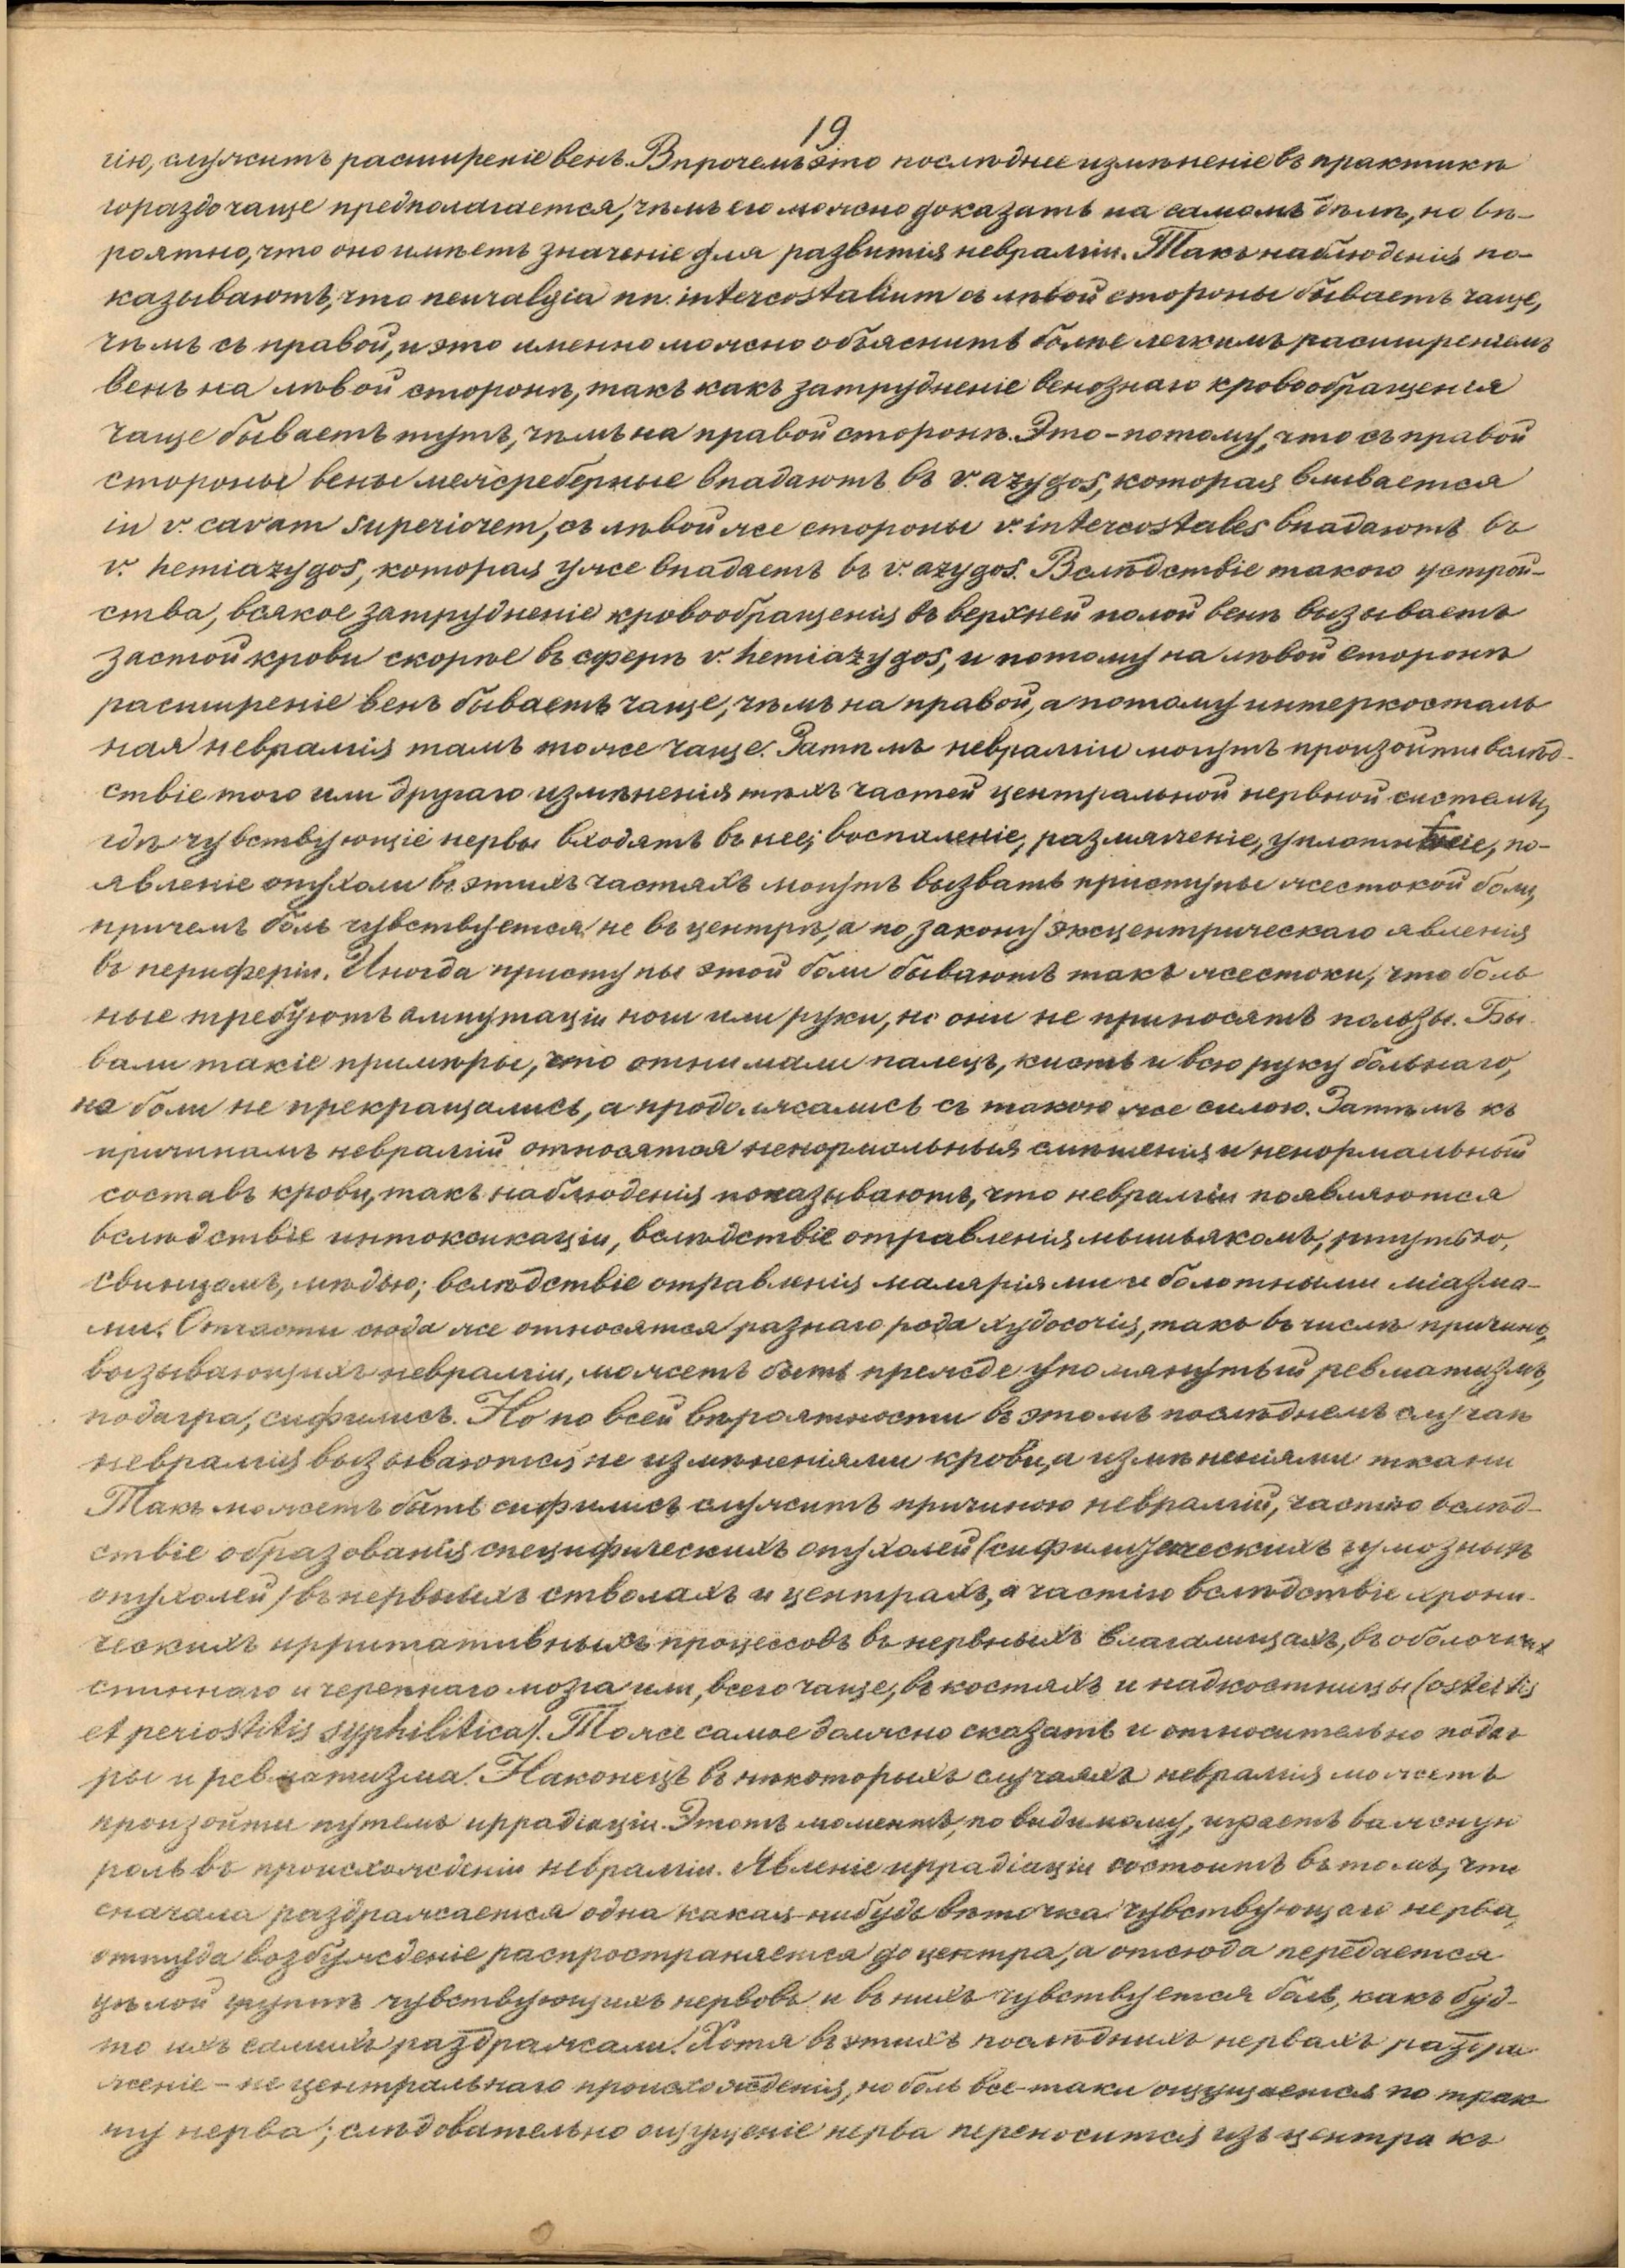 19
гію, служитъ расширеніе венъ. Впрочемъ это послѣднее измѣненіе въ практикѣ
гораздо чаще предполагается, чѣмъ его можно доказать на самомъ дѣлѣ, но вѣ-
роятно, что оно имѣетъ значеніе для развитія невралгіи. Такъ наблюденія по-
казываютъ, что neuralgia nn. intercostalium съ лѣвой стороны бываетъ чаще,
чѣмъ съ правой, и это именно можно объяснить болѣе легкимъ расширеніемъ
венъ на лѣвой сторонѣ, такъ какъ затрудненіе венознаго кровообращенія
чаще бываетъ тутъ, чѣмъ на правой сторонѣ. Это - потому, что съ правой
стороны вены межреберные впадаютъ въ v. azygos, которая вливается
in v. cavam superiorem, съ лѣвой же стороны v. intercostales впадаютъ въ
v. hemiazygos, которая уже впадаетъ въ v. azygos. Вслѣдствіе такого устрой-
ства, всякое затрудненіе кровообращенія въ верхней полой венѣ вызываетъ
застой крови скорѣе въ сферѣ v. hemiazygos, и потому на лѣвой сторонѣ
расширеніе венъ бываетъ чаще, чѣмъ на правой, а потому интеркосталь
ная невралгія тамъ тоже чаще. Затѣмъ невралгіи могутъ произойти вслѣд-
ствіе того или другаго измѣненія тѣхъ частей центральной нервной системы,
гдѣ чувствующіе нервы входятъ въ нее; воспаленіе, размягченіе, уплотненіе, по-
явленіе опухоли въ этихъ частяхъ могутъ вызвать приступы жестокой боли,
причемъ боль чувствуется не въ центрѣ, а по закону эксцентрическаго явленія
въ периферіи. Иногда приступы этой боли бываютъ такъ жестоки, что боль
ные требуютъ ампутаціи ноги или руки, но они не приносятъ пользы. Бы-
вали такіе примѣры, что отнимали палецъ, кисть и всю руку больнаго,
но боли не прекращались, а продолжались съ такою же силою. Затѣмъ къ
причинамъ невралгій относятся ненормальныя смѣшенія и ненормальный
составъ крови, такъ наблюденія показываютъ, что невралгіи появляются
вслѣдствіе интоксикаціи, вслѣдствіе отравленія мышьякомъ, ртутью,
свинцомъ, мѣдью; вслѣдствіе отравленія маляріями и болотными міазма-
ми. Отчасти сюда же относятся разнаго рода худосочія, такъ въ числѣ причинъ,
вызывающихъ невралгіи, можетъ быть прежде упомянутый ревматизмъ,
подагра, сифилисъ. Но по всей вѣроятности въ этомъ послѣднемъ случаѣ
невралгія вызываются не измѣненіями крови, а измѣненіями ткани
Такъ можетъ быть сифилисъ служитъ причиною невралгій, частію вслѣд-
ствіе образованія специфическихъ опухолей (сифилитическихъ гумозныхъ
опухолей) въ нервныхъ стволахъ и центрахъ, а частію вслѣдствіе хрони-
ческихъ ирритативныхъ процессовъ въ нервныхъ влагалищахъ, въ оболочкахъ
спиннаго и черепнаго мозга или, всего чаще, въ костяхъ и надкостницы (osteitis
et periostitis syphilitica). Тоже самое должно сказать и относительно подаг
ры и ревматизма. Наконецъ въ нѣкоторыхъ случаяхъ невралгія можетъ
произойти путемъ иррадіаціи. Этотъ моментъ, повидимому, играетъ важную
роль въ происхожденіи невралгіи. Явленіе иррадіаціи состоитъ въ томъ, что
сначала раздражается одна какая-нибудь вѣточка чувствующаго нерва,
откуда возбужденіе распространяется до центра, а отсюда передается
цѣлой группѣ чувствующихъ нервовъ и въ нихъ чувствуется боль, какъ буд-
то ихъ самихъ раздражали. Хотя въ этихъ послѣднихъ нервахъ раздра-
женіе - не центральнаго происхожденія, но боль все-таки ощущается по трак
ту нерва; слѣдовательно ощущеніе нерва переносится изъ центра къ